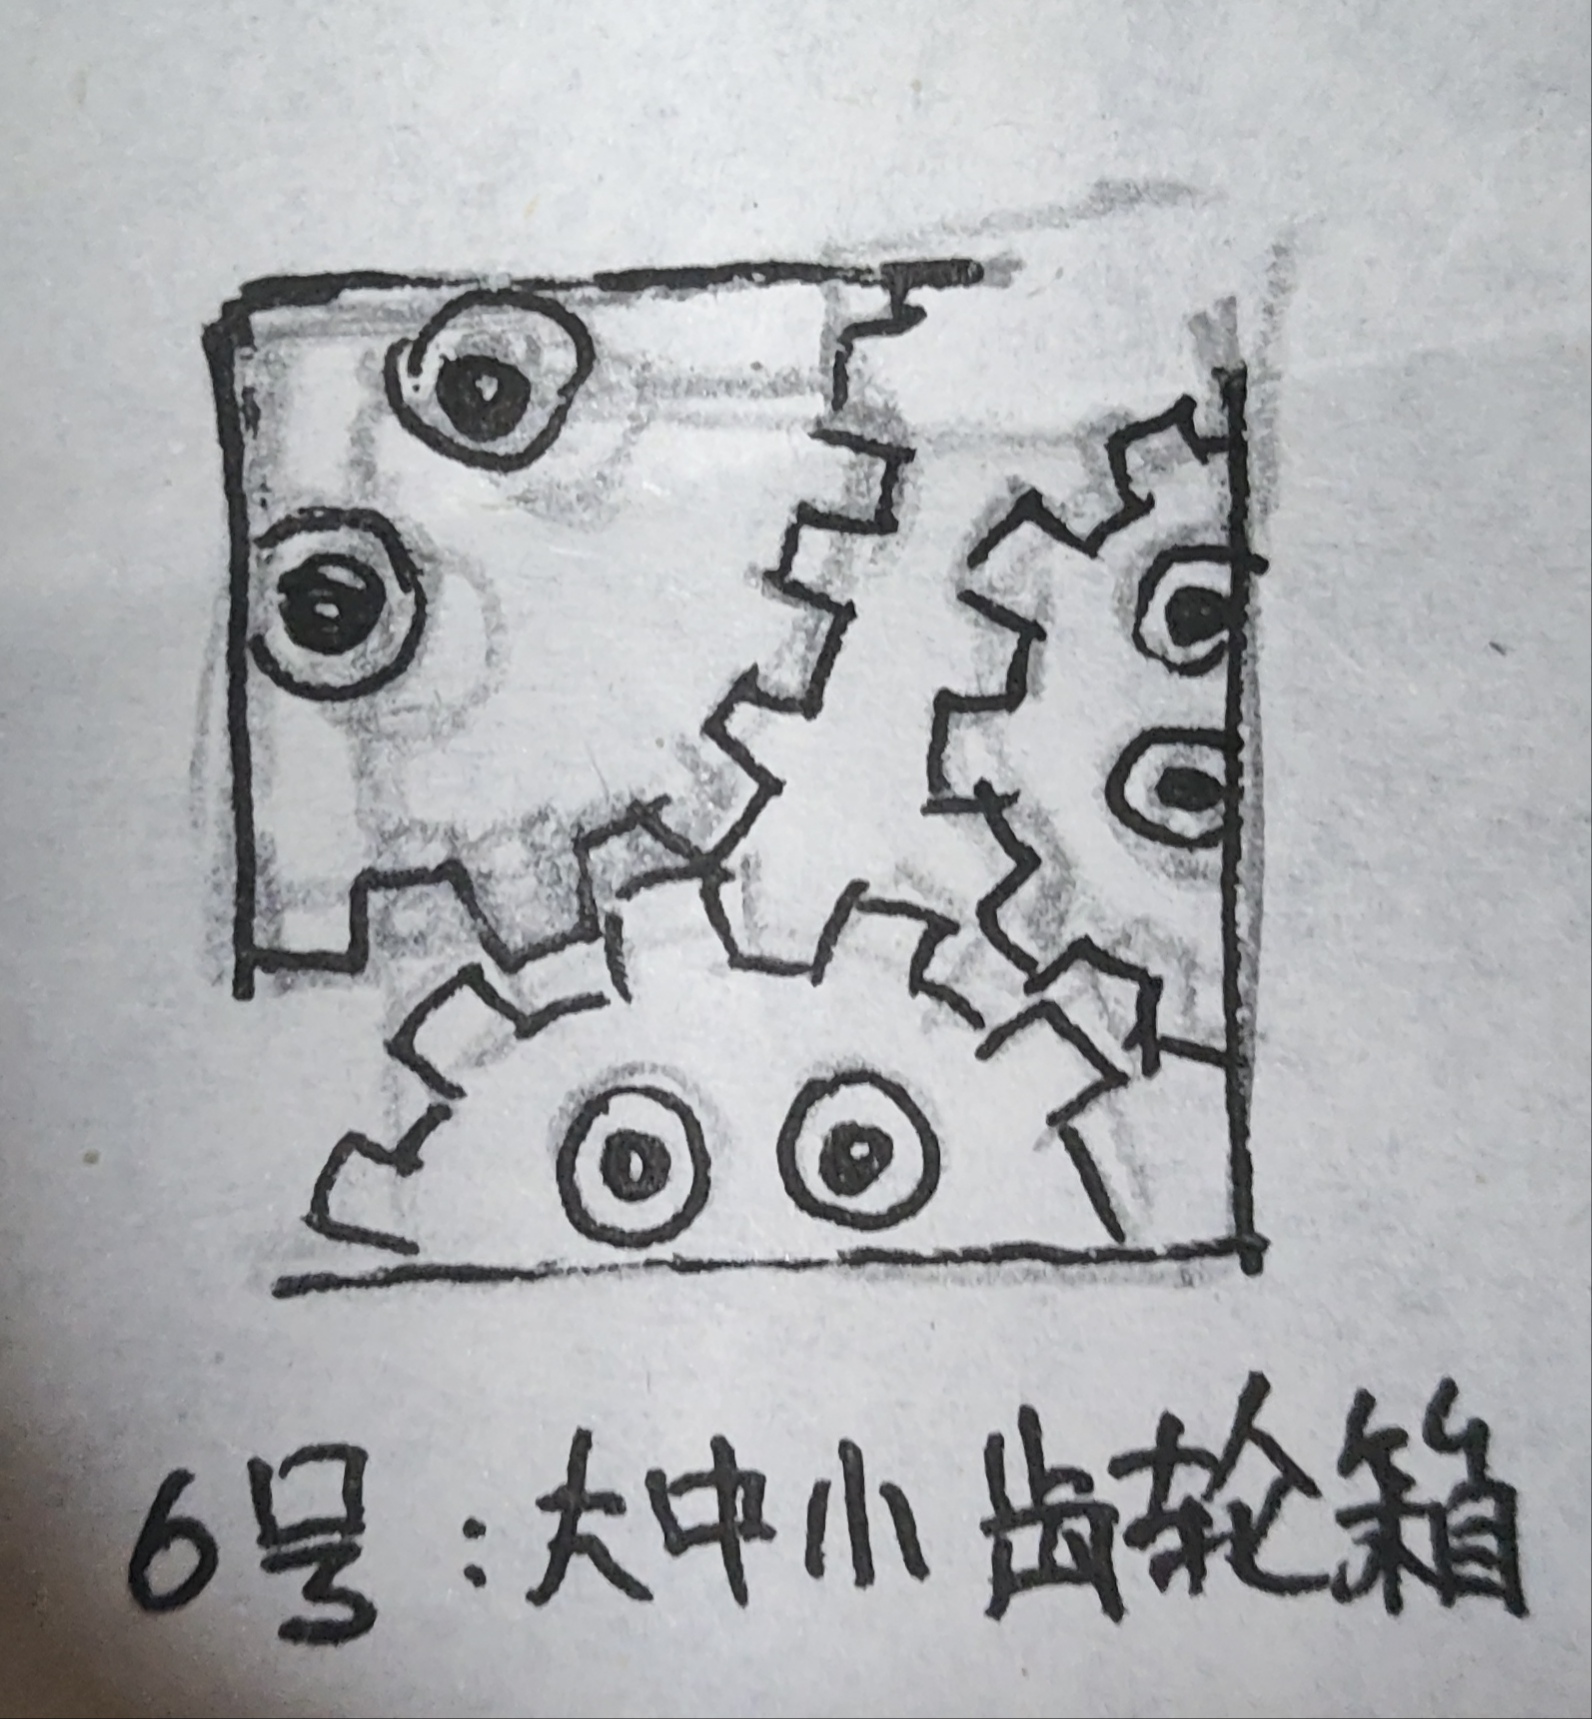 6号：大中小齿轮箱